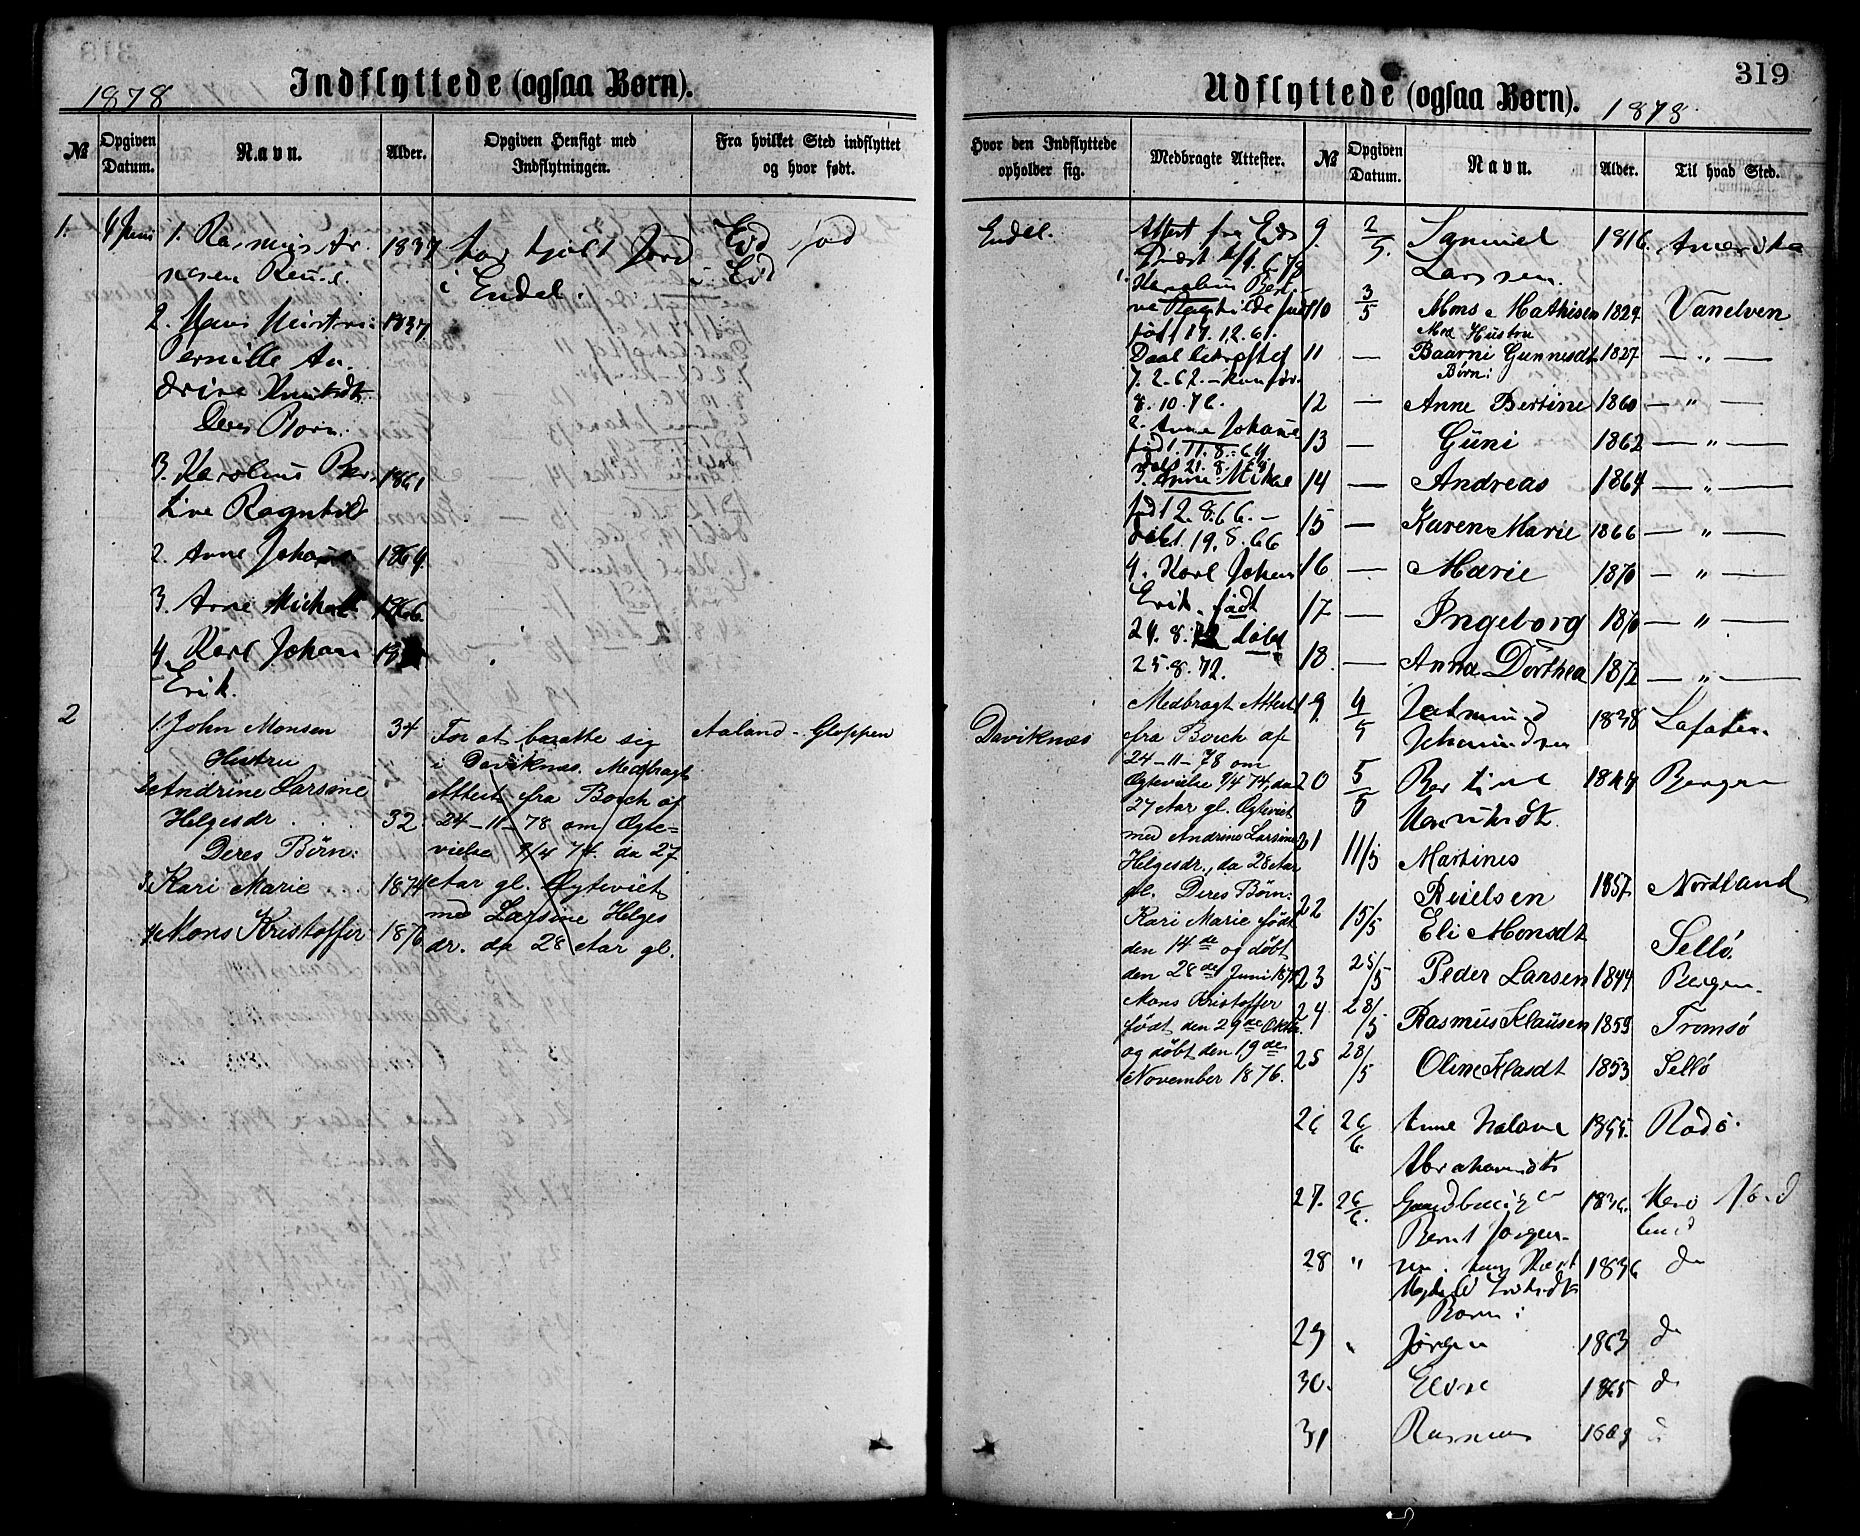 1878
Indflyttede (ogsaa Børn).
№
Opgiven Datum.
Navn.
Alder.
Opgiven Hensigt med Indflytningen.
Fra hvilket Sted indflyttet og hvor født.
1. 4 Juni 1. Rasmus Ar- 1837 har kjøbt Jord Eid født
nesen i Endal. i Eid
2. 1837
Pernille An-
drine Knutsdt
Deres Børn:
3. Karolus Ber- 1861
tine Ragnhild
2. Anne Johanne 1864.
3. Anne Michal 1866
4. Karl Johan
Erik.
2 1. John Monsen 34 For at bosætte sig Aaland - Gloppen
Hustru i Daviknæs. Medbragt
2 Andrine Larsine Attest fra Borch af
Helgesdr. 32. 24-11-78 om Ægte=
Deres Børn: vielse 9/4 74. da 27
3. Kari Marie 1874 Aar gl. Ægteviet
4 Mons Kristoffer 1876 med Larsine Helges
dr. da 28 Aar gl.
319
Udflyttede (ogsaa Børn). 1878.
Hvor den Indflyttede opholder sig.
Medbragte Attester.
№
Opgiven Datum.
Navn.
Alder.
Til hvad Sted.
Endal.
Attest fra Eids
Præst
1. Karolus Bert-
ine Ragnhilde
født 17.12.61.
Daab bekræftet
7.2.62. - konfir.
8.10.76.
2. Anne Johanne
født 11.8.64
døbt 21.8.64
3. Anne Mikal
født 2.8.66. -
døbt 19.8.66
4. Karl Johan
Erik. født
24.8.72 døbt
25.8.72.
Daviknæs
Medbragt Attest
fra Borch af
24-11-78 om
Ægtevielse 9/4 74, da
27 Aar gl. Ægteviet
med Andrine Larsine
Helgesdr., da 28 Aar
gl. Deres Børn:
Kari Marie født
den 14de og døbt
den 28de Juni 1874
Mons Kristoffer
født den 29de Oktb.
og døbt den 19de
November 1876.
9. 2/5. Samuel Larssen 1816. Amerika
10 3/5 Mons Mathisen 1829 Vanelven
Med Hustru
11 — Baarni Gunnesdt 1827 — " —
Børn:
12 — Anne Bertine 1860 — " —
13 — Guni 1862 — " —
14 — Andreas 1864 — " —
15 — Karen Marie 1866 — " —
16 — Marie 1870 — " —
17 — Ingeborg 1870 — " —
18. — Anna Dorthea 1872 — " —
19. 4/5 1838 Lofoten.
20 5/5 Bertine 1844 Bergen
21 11/5 Martines
1857. Nordland
22 15/5 Eli Monsdt Sellø
23 25/5 Peder Larsen 1844 Bergen.
24 28/5 Rasmus Klausen 1859 Tromsø
25 28/5 Oline Klasdt 1853 Sellø
26 26/6. Anne Malene 1855. Rodø.
Abrahamsdt
27. 26/6. Gaardbruger 1836. Herø Nord
Bernt Jørgen- land
28 " 1836 do
Børn:
29 " Jørgen 1863 do
30. 1865 do
31 Rasmus 1869